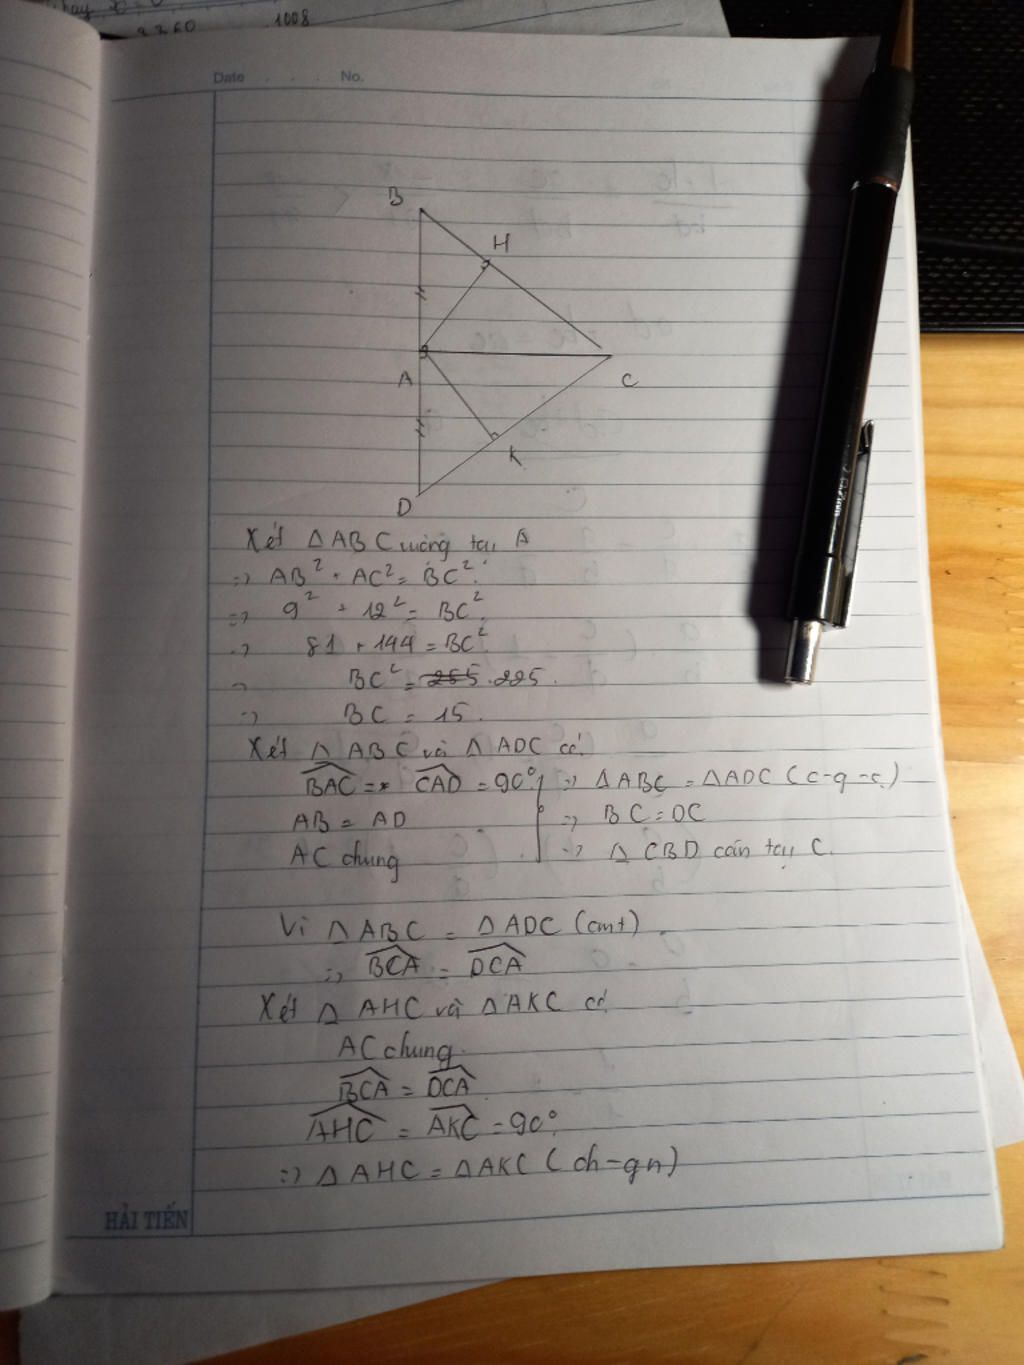 3360 1008
Date . . . No.
B
H
A
C
K
D
Xét △ABC vuông tại A
=> AB² + AC² = BC².
=> 9² + 12² = BC²
=> 81 + 144 = BC².
=> BC² = 255 . 225.
=> BC = 15.
Xét △ ABC và △ ADC có
BAC = CAD = 90° => △ABC = △ADC (c-g-c)
AB = AD => BC = DC
AC chung => △ CBD cân tại C.
Vì △ ABC = △ ADC (cmt)
=> BCA = DCA
Xét △ AHC và △AKC có
AC chung
BCA = DCA
AHC = AKC = 90°
=> △AHC = △AKC (ch-gn)
HẢI TIẾN